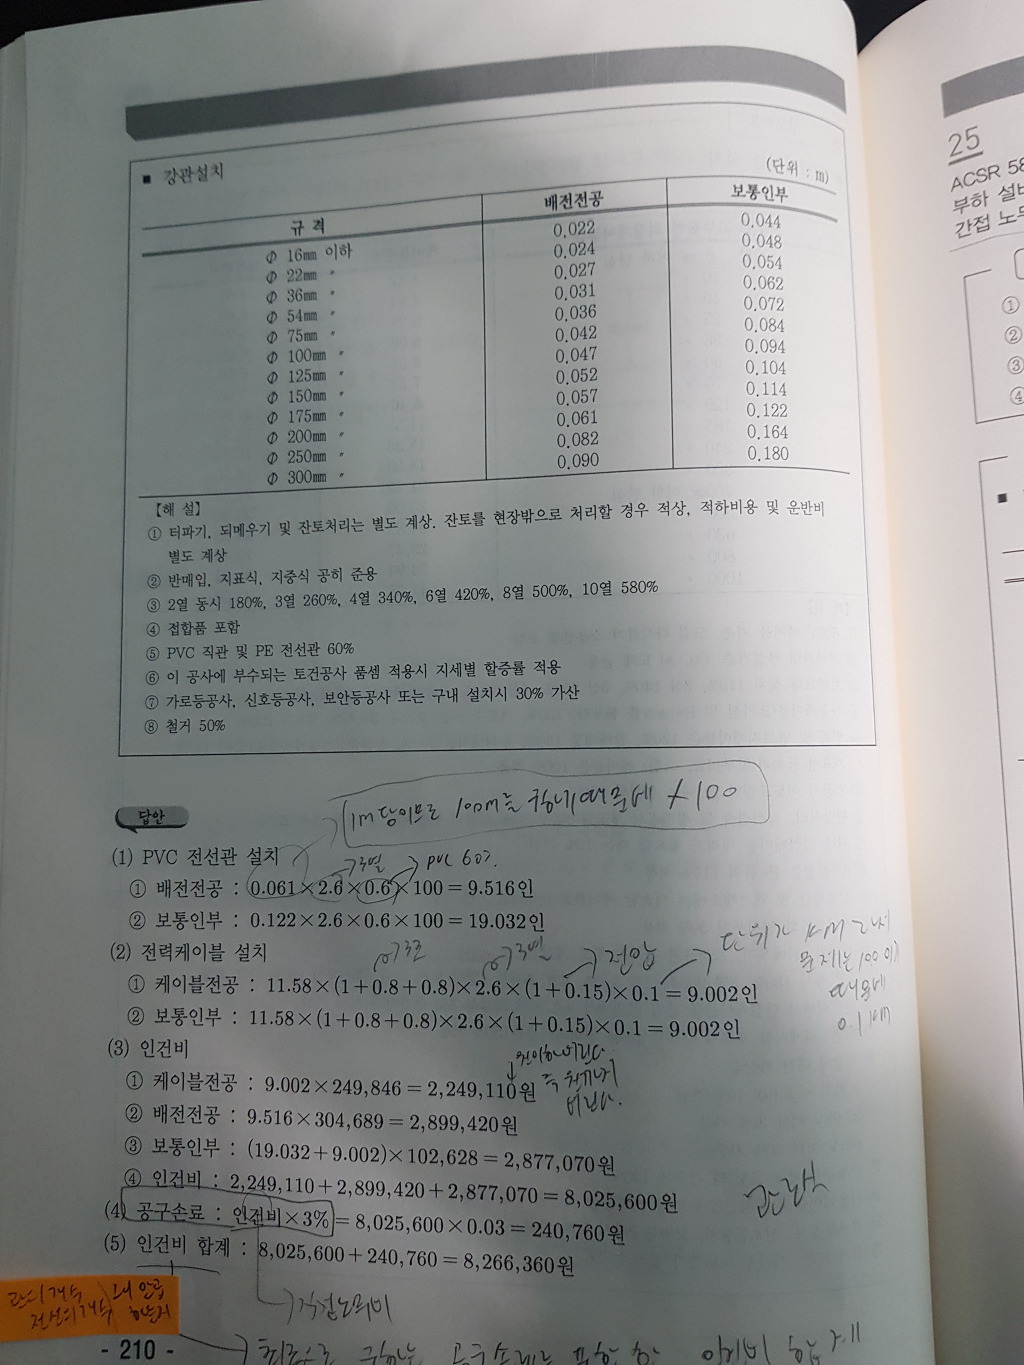 ■ 강관설치
(단위 : m)
규 격 배전전공 보통인부
Φ 16㎜ 이하 0.022 0.044
Φ 22㎜ 〃 0.024 0.048
Φ 36㎜ 〃 0.027 0.054
Φ 54㎜ 〃 0.031 0.062
Φ 75㎜ 〃 0.036 0.072
Φ 100㎜ 〃 0.042 0.084
Φ 125㎜ 〃 0.047 0.094
Φ 150㎜ 〃 0.052 0.104
Φ 175㎜ 〃 0.057 0.114
Φ 200㎜ 〃 0.061 0.122
Φ 250㎜ 〃 0.082 0.164
Φ 300㎜ 〃 0.090 0.180
【해 설】
① 터파기, 되메우기 및 잔토처리는 별도 계상, 잔토를 현장밖으로 처리할 경우 적상, 적하비용 및 운반비
별도 계상
② 반매입, 지표식, 지중식 공히 준용
③ 2열 동시 180%, 3열 260%, 4열 340%, 6열 420%, 8열 500%, 10열 580%
④ 접합품 포함
⑤ PVC 직관 및 PE 전선관 60%
⑥ 이 공사에 부수되는 토건공사 품셈 적용시 지세별 할증률 적용
⑦ 가로등공사, 신호등공사, 보안등공사 또는 구내 설치시 30% 가산
⑧ 철거 50%
답안
1m당이므로 100m를 구하기때문에 ×100
(1) PVC 전선관 설치
3열 PVC 60%
① 배전전공 : 0.061×2.6×0.6×100=9.516인
② 보통인부 : 0.122×2.6×0.6×100=19.032인
(2) 전력케이블 설치
3열 전압
단위가 KM 로서
문제는 100이
때문에
0.1 KM
① 케이블전공 : 11.58×(1+0.8+0.8)×2.6×(1+0.15)×0.1=9.002인
② 보통인부 : 11.58×(1+0.8+0.8)×2.6×(1+0.15)×0.1=9.002인
(3) 인건비
원이하버린다
버린다.
① 케이블전공 : 9.002×249,846=2,249,110원
② 배전전공 : 9.516×304,689=2,899,420원
③ 보통인부 : (19.032+9.002)×102,628=2,877,070원
④ 인건비 : 2,249,110+2,899,420+2,877,070=8,025,600원
(4) 공구손료 : 인건비×3%=8,025,600×0.03=240,760원
(5) 인건비 합계 : 8,025,600+240,760=8,266,360원
직접노무비
관의 개수
전선의 개수
- 210 -
25
ACSR 58
부하 설비
간접 노무
①
②
③
④
■